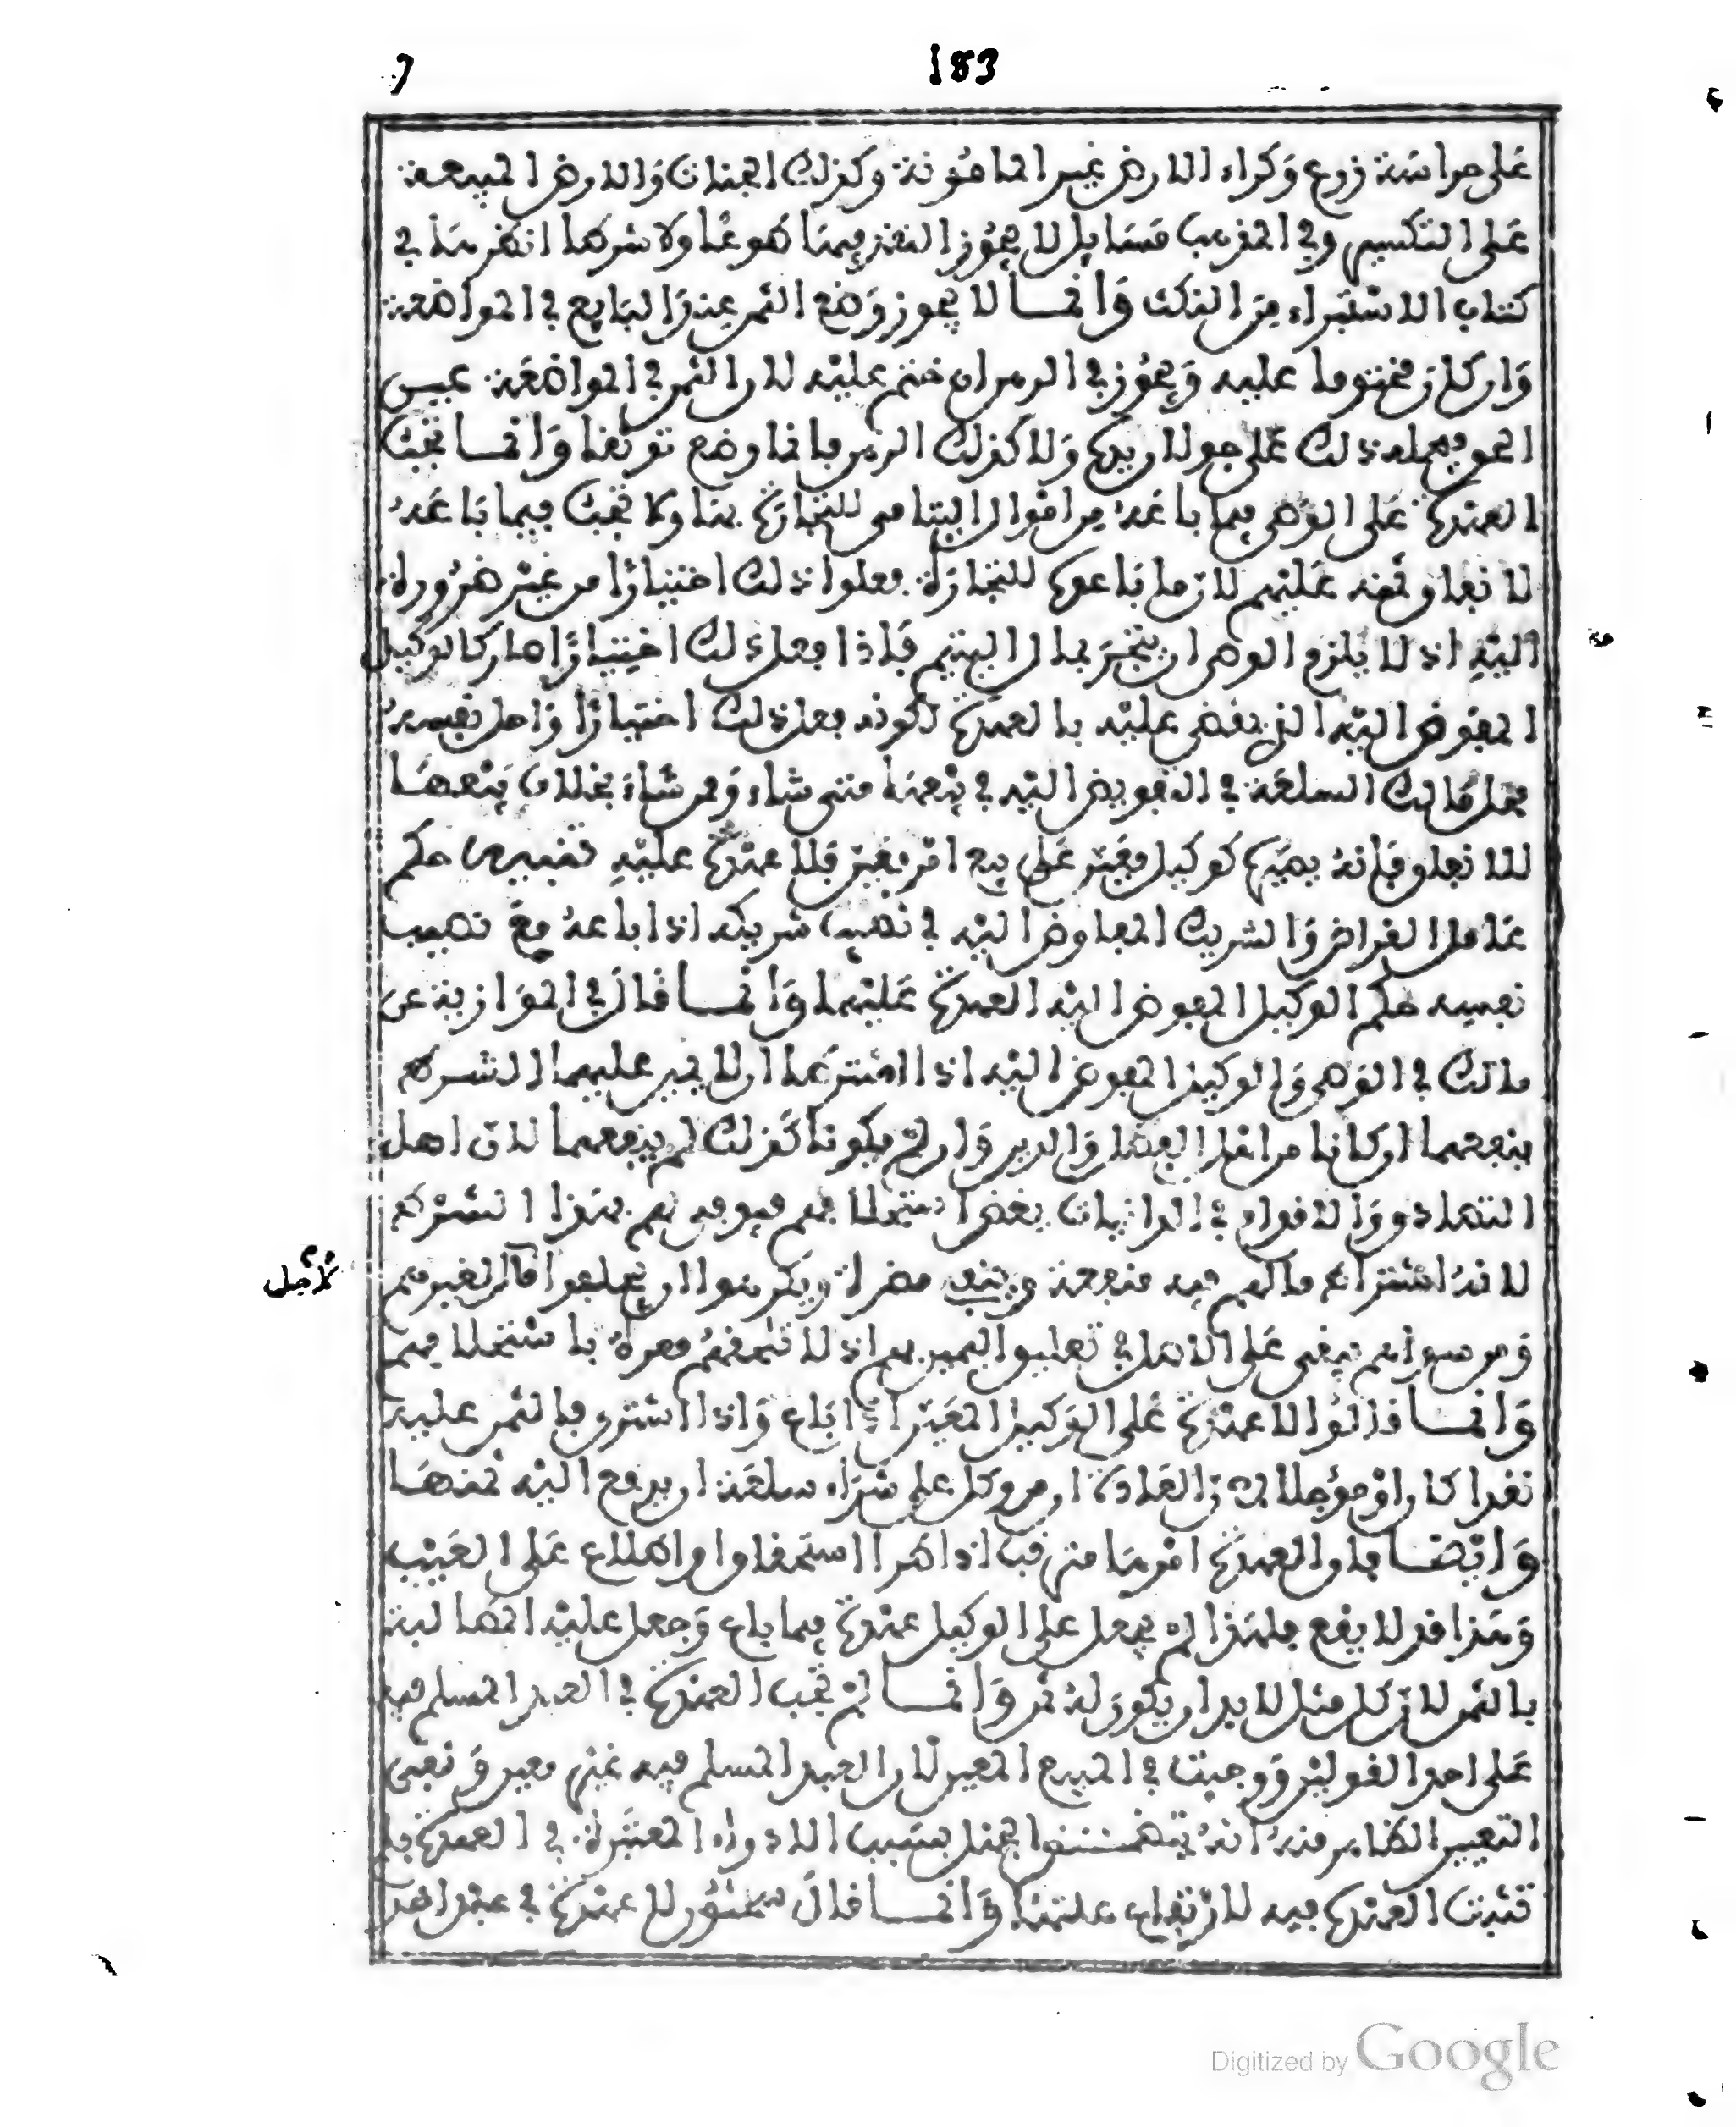 183
على حراسة زرع وكراء الارض غير المامونة وكذلك الجنات والارض المبيعة
على التكسير وفي المغرب مسايل لا يجوز النقد فيها هو عا ولا شرطا انظرها في
كتاب الاستبراء من النكت وانما لا يجوز وضع الثمن عند البايع في المواضعة
وان كان مختوما عليه ويجوز في الرهن ان ختم عليه لان الثمن في المواضعة عين
الحق فحمله ذلك على جولان يده ولا كذلك الرهن فانما وضع توثقا وانما تجب
العهدة على الوصي فيما باعه من اموال اليتامى للتجارة بها ولا تجب فيما باعه
للانفاق منه عليهم لان ما باعوه للتجارة فعلوا ذلك اختيارا من غير ضرورة
اليه اذ لا يلزم الوصي ان يتجر بمال اليتيم فاذا فعل ذلك اختيارا صار كالوكيل
المفوض اليه الذي يقضى عليه بالعهدة لكونه فعل ذلك اختيارا واحل نفسه
محل مالك السلعة في التفويض اليه في بيعها متى شاء وممن شاء بخلاف بيعها
للانفاق فانه يصير كوكيل معين على بيع امر معين فلا عهدة عليه تنبيه حكم
عامل القراض والشريك المفاوض اليه في نصيب شريكه اذا باعه مع نصيب
نفسه حكم الوكيل المفوض اليه العهدة عليهما وانما قال في الموازية عن
مالك في الوصي والوكيل المفوض اليه اذا اشترطا ان لا يمين عليهما الشرط
ينفعهما ان كانا من اهل الفضل والدين وان لم يكونا كذلك لم ينفعهما لان اهل
التصاون والاقدار في الديانات بعض استحلافهم فيوفى لهم بهذا الشرط
لانه اشتراط مالهم فيه منفعة وبفقده مضرة ويكرهوا ان يحلفوا لاجل الغير منهم
ومن سواهم يبقى على الاصل في تعليق اليمين بهم اذ لا تلحقهم معرة باستحلافهم
وانما قالوا لا عهدة على الوكيل المعين اذا باع واذا اشترى فالثمن عليه
نقدا كان او مؤجلا لان العادة ان من وكل على شراء سلعة ان يدفع اليه ثمنها
وايضا فان العهدة امرها مترقب اذا طرا استحقاق او اطلاع على العيب
وهذا قد لا يقع فلهذا لم يجعل على الوكيل عهدة فيما باع وجعل عليه المطالبة
بالثمن لان كل مثل لا بد ان يكون له ثمن وانما لم تجب العهدة في العبد المسلم فيه
على احد القولين ووجبت في المبيع المعين لان العبد المسلم فيه غير معين ونفي
التعيين الظاهر منه انه يتضمن الجهل بسبب الادواء المعتبرة في العهدة فلم
تثبت العهدة فيه لارتفاع علتها وانما قال سحنون لا عهدة في عبد اخذ
لاجل
صح
Digitized by Google